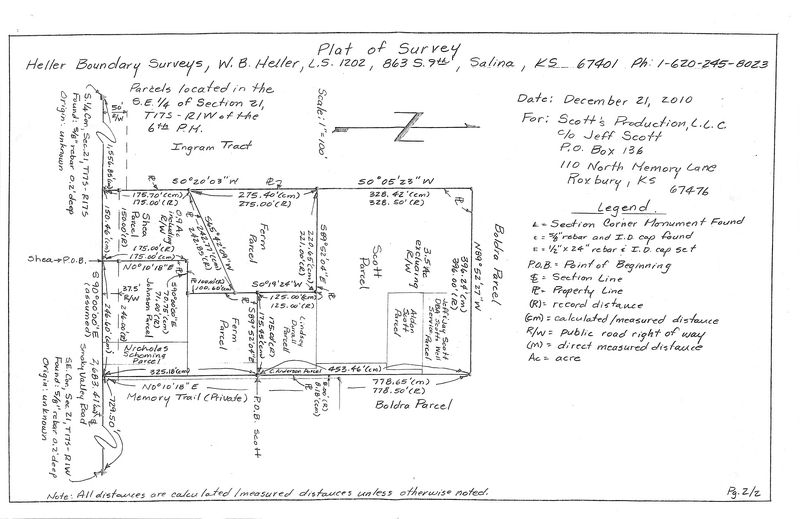 Plat of Survey
Heller Boundary Surveys, W. B. Heller, L.S. 1202, 863 S. 9th, Salina, KS 67401 Ph: 1-620-245-8023
Parcels located in the
S.E. 1/4 of Section 21,
T17S - R1W of the
6th P.M.
Ingram Tract
Scale: 1"=100'
Date: December 21, 2010
For: Scott's Production, L.L.C.
c/o Jeff Scott
P.O. Box 136
110 North Memory Lane
Roxbury, KS
67476
Legend
= Section Corner Monument Found
= 5/8" rebar and I.D. cap found
= 1/2" x 24" rebar & I.D. cap set
P.O.B. = Point of Beginning
= Section Line
= Property Line
(R) = record distance
(cm) = calculated/measured distance
R/W = public road right of way
(m) = direct measured distance
Ac = acre
S. 1/4 Cor. Sec. 21, T17S - R1W
Found: 5/8" rebar 0.2' deep
Origin: unknown
50'
R/W
S0°20'03"W
S0°05'23"W
175.70'(cm)
175.00'(R)
275.40'(cm)
275.00'(R)
328.42'(cm)
328.50'(R)
150.46'(cm)
150.00'(R)
Shea
Parcel
0.9 Ac
including
R/W
175.00'(R)
175.00'(cm)
Ferm
Parcel
220.65'(cm)
221.00'(R)
S89°52'14"E
Scott
Parcel
3.5 Ac
excluding
R/W
396.24'(cm)
396.00'(R)
N89°52'27"W
Boldra Parcel
Shea → P.O.B.
N0°10'18"E
S90°00'00"E
(assumed)
37.5'
R/W
246.60'(cm)
246.00'(R)
Johnson Parcel
S90°00'00"E
70.75'(cm)
71.00'(R)
100.00'(R)
100.60'(cm)
S0°19'24"W
125.00'(cm)
125.00'(R)
Ferm
Parcel
S89°52'04"E
175.45'(cm)
175.00'(R)
Lindsey
Parcel
Aldon
Scott
Parcel
Jeff/Jay Scott
Service Parcel
Nicholas
Schoming
Parcel
325.18'(cm)
C. Anderson Parcel
453.46'(cm)
8.00'(R)
8.18'(cm)
778.65'(cm)
778.50'(R)
N0°10'18"E
Memory Trail (Private)
P.O.B. Scott
Boldra Parcel
2,683.41'
Smoky Valley Road
729.50'
S.E. Cor. Sec 21, T17S - R1W
Found: 5/8" rebar 0.2' deep
Origin: unknown
Note: All distances are calculated/measured distances unless otherwise noted.
Pg. 2/2